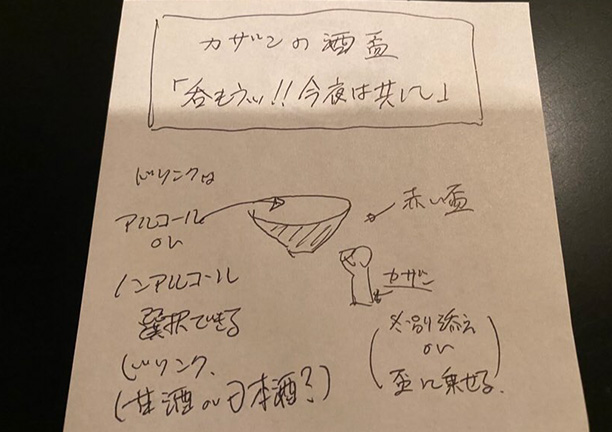 カザンの酒盃
「呑もうぃ!!今夜は共に」
ドリンクは
アルコール
or
ノンアルコール
選択できる
ドリンク、
(甘酒or日本酒?)
赤い盃
カザン
(※別添え
or
盃に乗せる.)